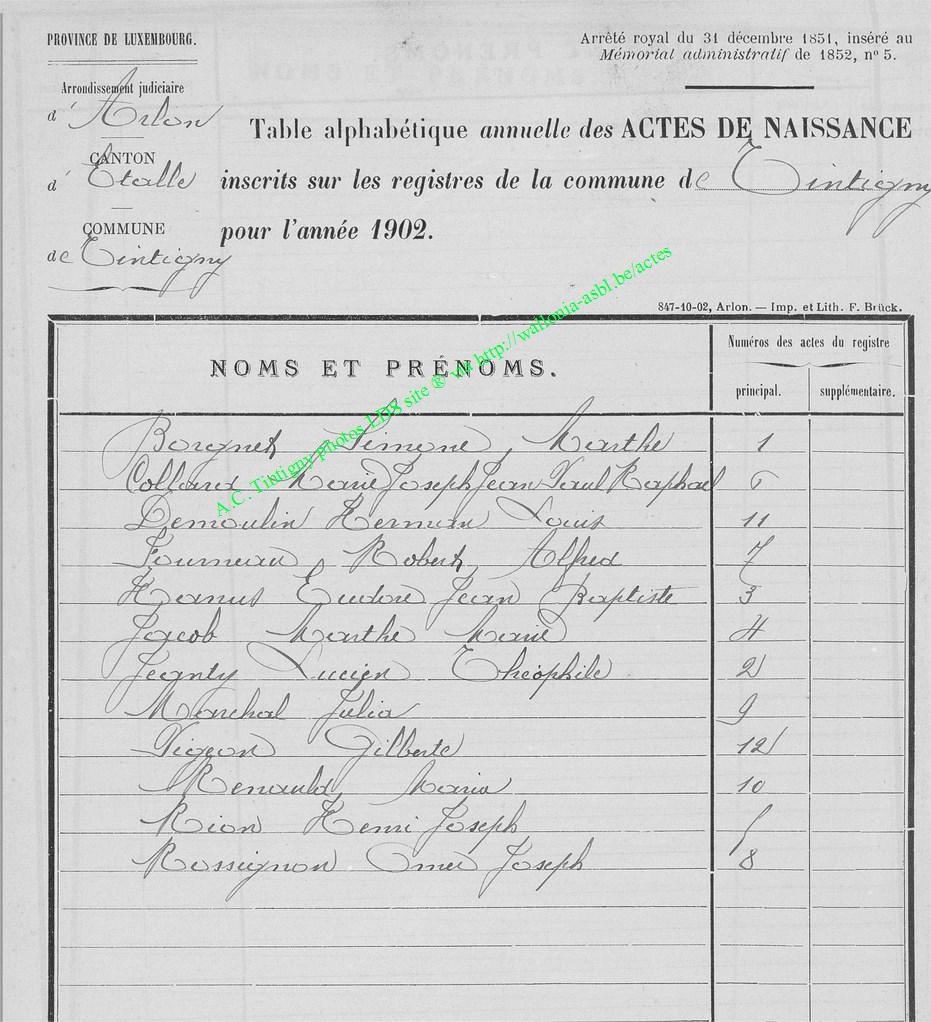 PROVINCE DE LUXEMBOURG.
Arrêté royal du 31 décembre 1851, inséré au
Mémorial administratif de 1852, n° 5.
Arrondissement judiciaire
d' Arlon
CANTON
d' Etalle
COMMUNE
de Tintigny
Table alphabétique annuelle des ACTES DE NAISSANCE
inscrits sur les registres de la commune de Tintigny
pour l'année 1902.
847-10-02, Arlon. — Imp. et Lith. F. Brück.
A.C. Tintigny photos LDS site ® via http://wallonia-asbl.be/actes
NOMS ET PRÉNOMS.
Numéros des actes du registre
principal. supplémentaire.
Borgnet Simone Marthe 1
Marie Joseph Jean Paul Raphael 6
Demoulin Herman Louis 11
Robert Alfred 7
Hanus Eudore Jean Baptiste 3
Jacob Marthe Marie 4
Jeanty Lucien Théophile 2
Maréchal Julia 9
Pigeon Gilberte 12
Renauld Maria 10
Rion Henri Joseph 5
Rossignon Omer Joseph 8